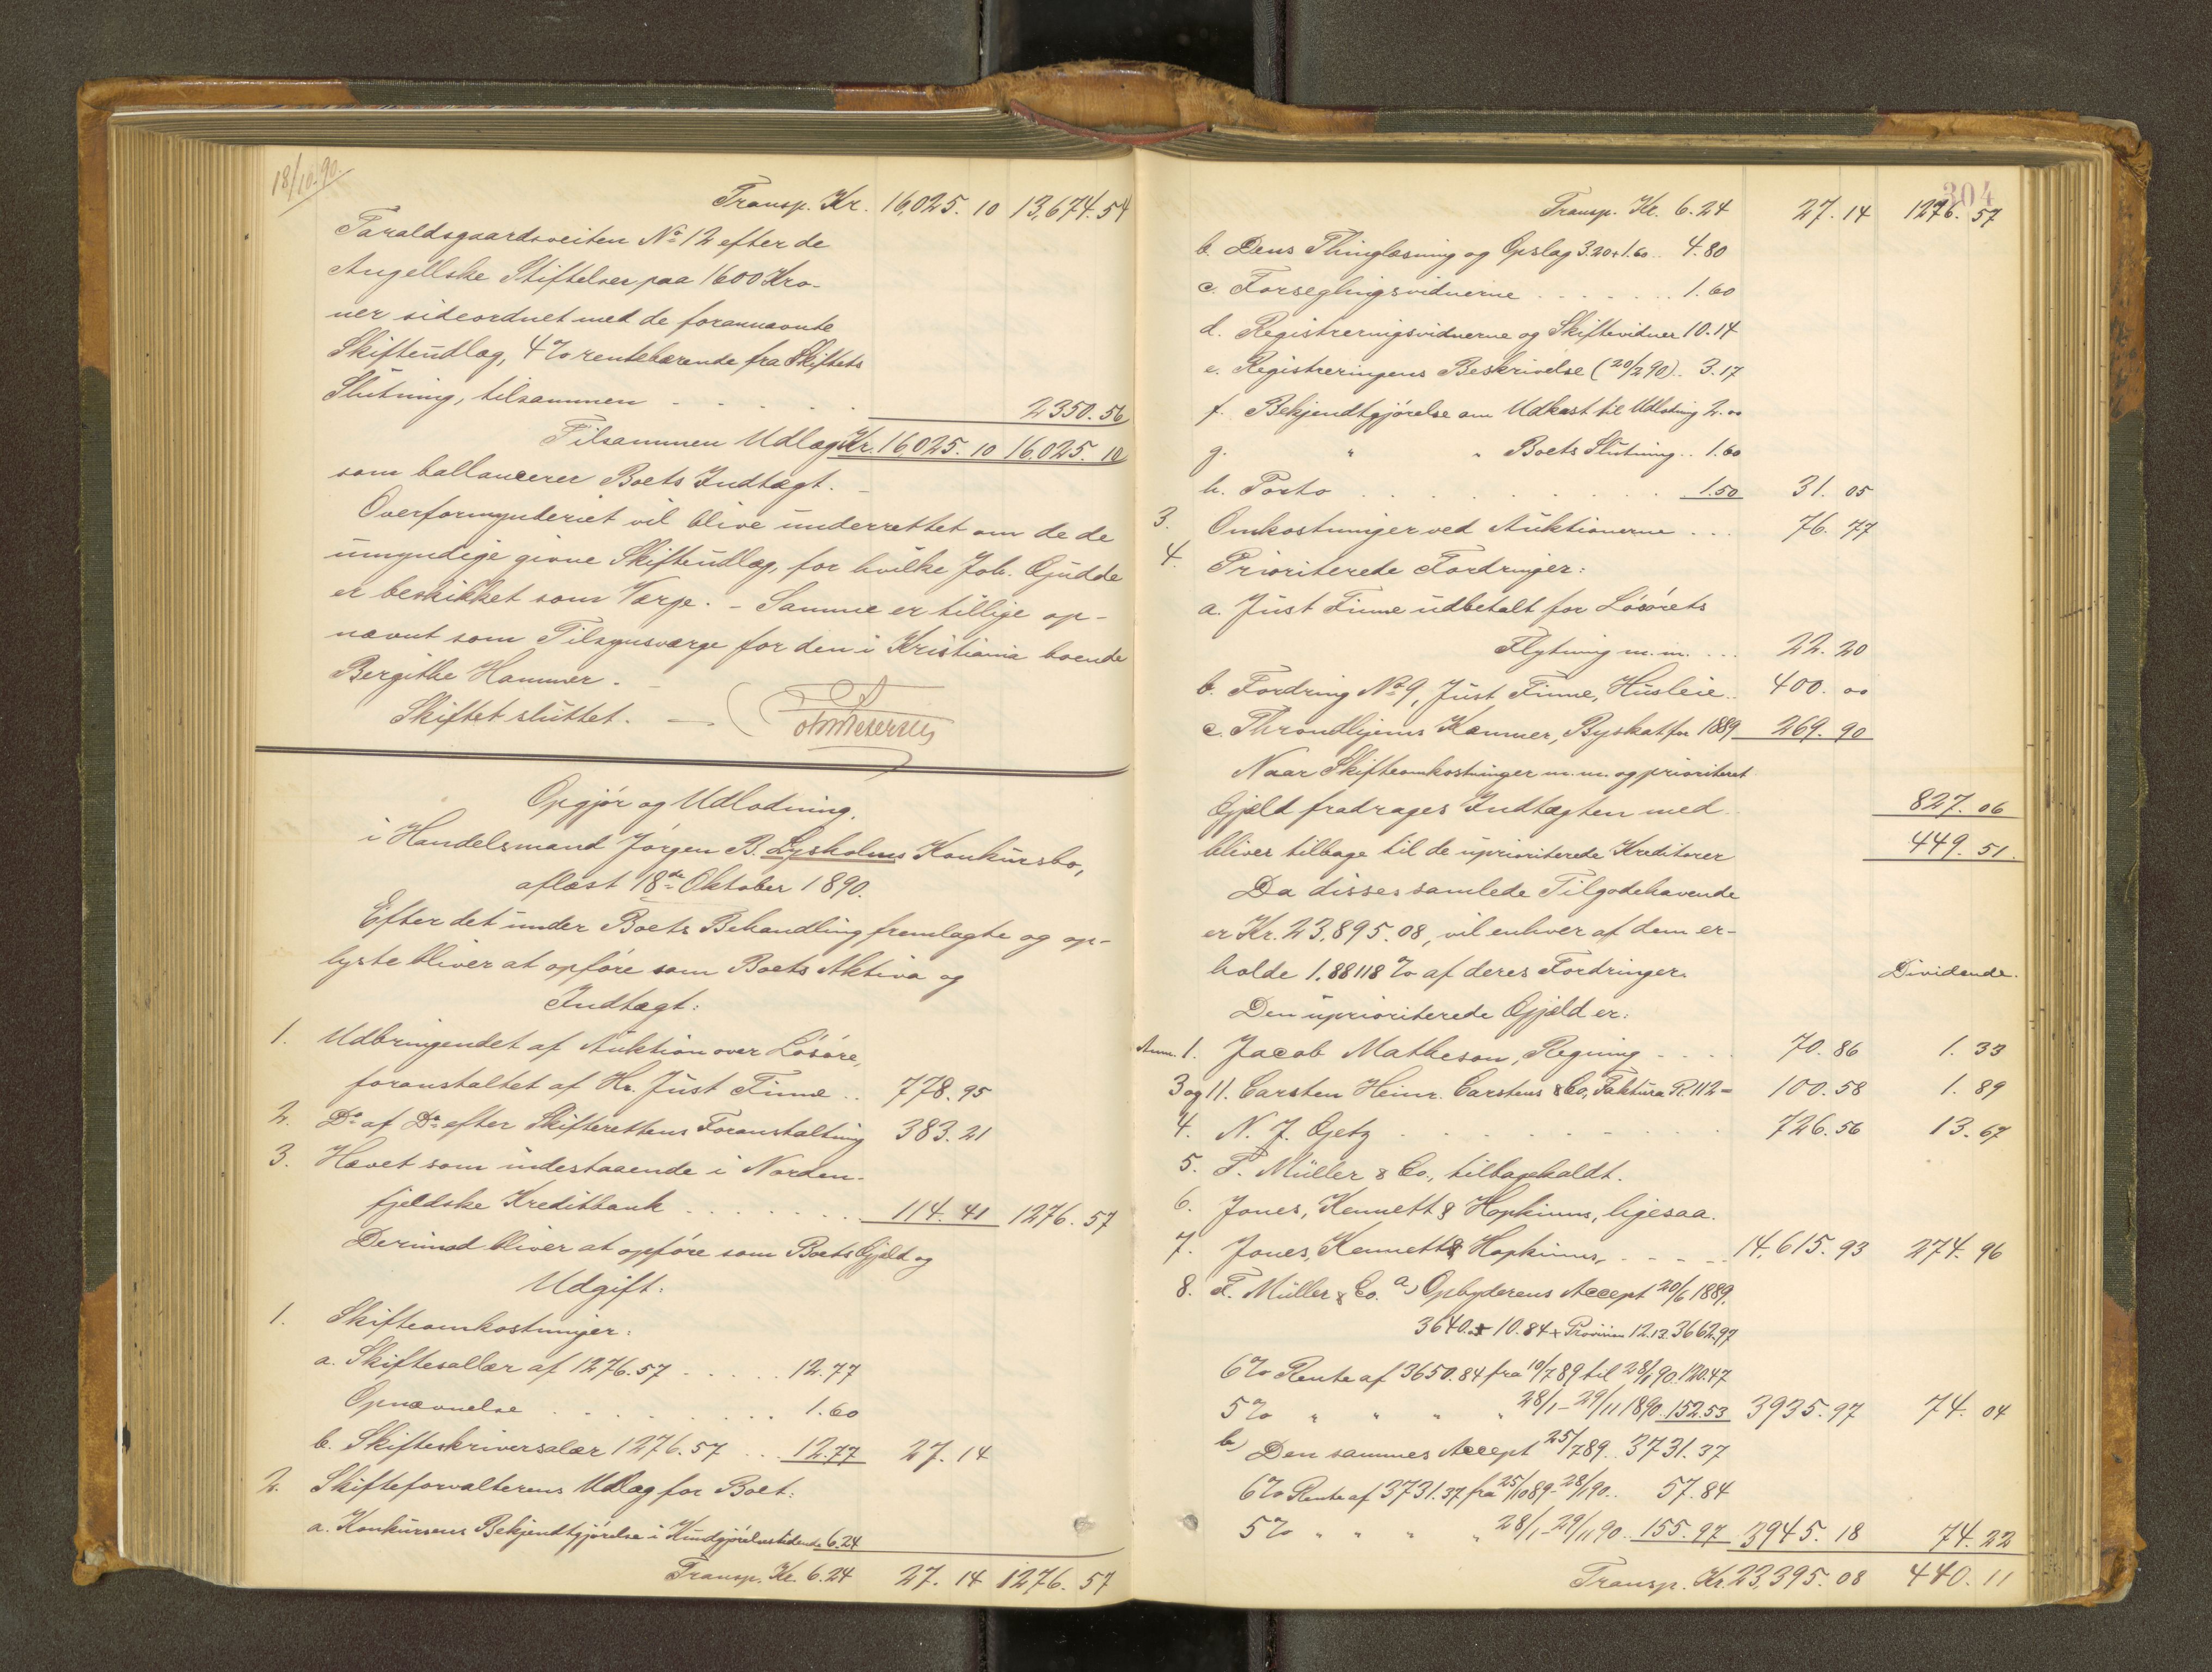 18/10.90.
Transp. Kr. 16,025. 10 13,674. 54
Taraldsgaardsveiten No 12 efter de
Angellske Stiftelser paa 1600 Kro-
ner sideordnet med de forannævnte
Skifteudlæg, 4% rentebærende fra Skiftets
Slutning, tilsammen - - - - - 2350. 56
Tilsammen Udlæg Kr. 16,025. 10 16,025. 10
som ballancerer Boets Indtægt. -
Overformynderiet vil blive underrettet om de de
umyndige givne Skifteudlæg, for hvilke Joh. Gjudde
er beskikket som Værge. - Samme er tillige op-
nævnt som Tilsynsværge for den i Kristiania boende
Bergithe Hammer. -
Skiftet sluttet. -
Opgjør og Udlodning.
i Handelsmand Jørgen B. Lysholms Konkursbo,
aflæst 18de Oktober 1890.
Efter det under Boets Behandling fremlagte og op-
lyste bliver at opføre som Boets Aktiva og
Indtægt:
1. Udbringendet af Auktion over Løsøre,
foranstaltet af Hr. Just Finne .. 778. 95
2. Do af Do efter Skifterettens Foranstaltning 383. 21
3. Hævet som indestaaende i Norden-
fjeldske Kreditbank . . . . . . . 114. 41 1276. 57
Derimod bliver at opføre som Boets Gjæld og
Udgift:
1. Skifteomkostninger:
a. Skiftesallær af 1276.57 . . . . . 12.77
Opnævnelse . . . . . . . . . . 1.60
b. Skifteskriversalær 1276.57 . . . 12.77 27. 14
2. Skifteforvalterens Udlæg for Boet:
a. Konkursens Bekjendtgjørelse i Kundgjørelsestidende 6.24
Transp. Kr. 6.24 27. 14 1276. 57
304
Transp. Kr. 6.24 27. 14 1276. 57
b. Dens Thinglæsning og Opslag 3.20+1.60.. 4.80
c. Forseglingsvidnerne . . . . . . . 1.60
d. Registreringsvidnerne og Skiftevidner 10.14
e. Registreringens Beskrivelse (20/2 90).. 3.17
f. Bekjendtgjørelse om Udkast til Udlodning 2.00
g. " " Boets Slutning .. 1.60
h. Porto . . . . . . . . . . 1.50 31. 05
3. Omkostninger ved Auktionerne . . . 76. 77
4. Prioriterede Fordringer:
a. Just Finne udbetalt for Løsørets
Flytning m.m. . . . 22. 20
b. Fordring No 9, Just Finne, Husleie.. 400. 00
c. Throndhjems Kæmner, Byskat for 1889 269. 90
Naar Skifteomkostninger m.m. og prioriteret
Gjæld fradrages Indtægten med . . 827. 06
bliver tilbage til de uprioriterede Kreditorer 449. 51.
Da disses samlede Tilgodehavende
er Kr. 23,895.08, vil enhver af dem er-
holde 1.88118 % af deres Fordringer. Dividende.
Den uprioriterede Gjæld er:
Anm. 1. Jacob Matheson, Regning - - . . 70. 86 1. 33
3 og 11. Carsten Heinr. Carstens & Co, Faktura R. 112 = 100. 58 1. 89
4. N. J. Gjetz . . . . . . . 726. 56 13. 67
5. F. Müller & Co., tilbageholdt.
6. Jones, Kennett & Hopkinns, ligesaa.
7. Jones, Kennett & Hopkinns, . - - - .. 14,615. 93 274. 96
8. F. Müller & Co. a) Opbyderens Accept 20/6 1889.
3640.+ 10.84+ Provision 12.13. 3662.97
6% Rente af 3650.84 fra 10/7 89 til 28/1 90. 120.47
5% " " " " 28/1 - 29/11 1890. 152.53 3935. 97 74. 04
b) Den sammes Accept 25/7 89.. 3731. 37
6% Rente af 3731.37 fra 25/10 89 - 28/1 90.. 57. 84
5% " " " " 28/1 - 29/11 90.. 155. 97 3945. 18 74. 22
Transp. Kr. 23,395. 08 440. 11